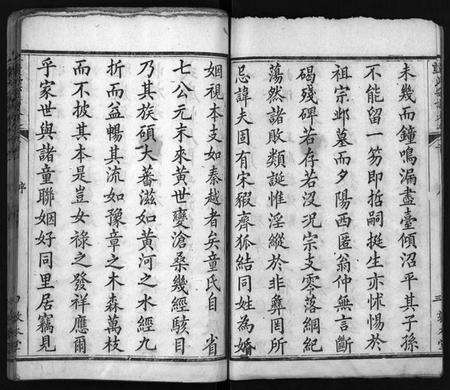 未幾而鐘鳴漏盡臺傾沼平其子孫
不能留一笏即哲嗣挺生亦怵惕於
祖宗邺墓而夕陽西匿翁仲無言斷
碣殘碑若存若沒况宗支零落綱紀
蕩然諸敗類誕惟淫縱於非彝罔所
忌諱夫固有宋猳齊狐結同姓為婚
姻視本支如秦越者矣童氏自　省
七公元末來黄世變滄桑幾經駭目
乃其族碩大蕃滋如黄河之水經九
折而益暢其流如豫章之木森萬枝
而不披其本是豈女祿之發祥應爾
乎家世與諸童聯姻好同里居竊見
序